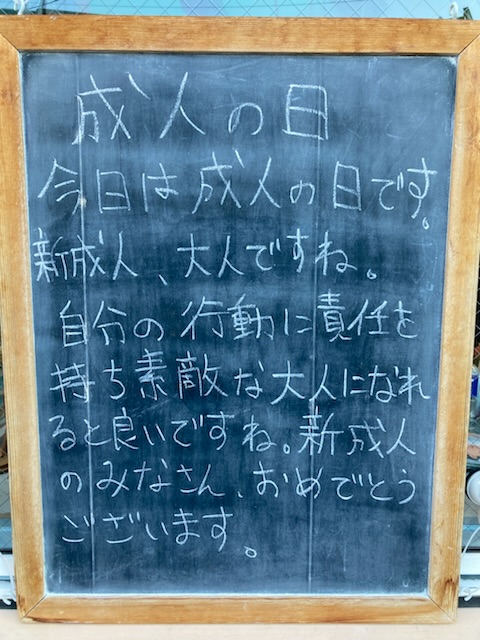 成人の日
今日は成人の日です。
新成人、大人ですね。
自分の行動に責任を
持ち素敵な大人になれ
ると良いですね。新成人
のみなさん、おめでとう
ございます。